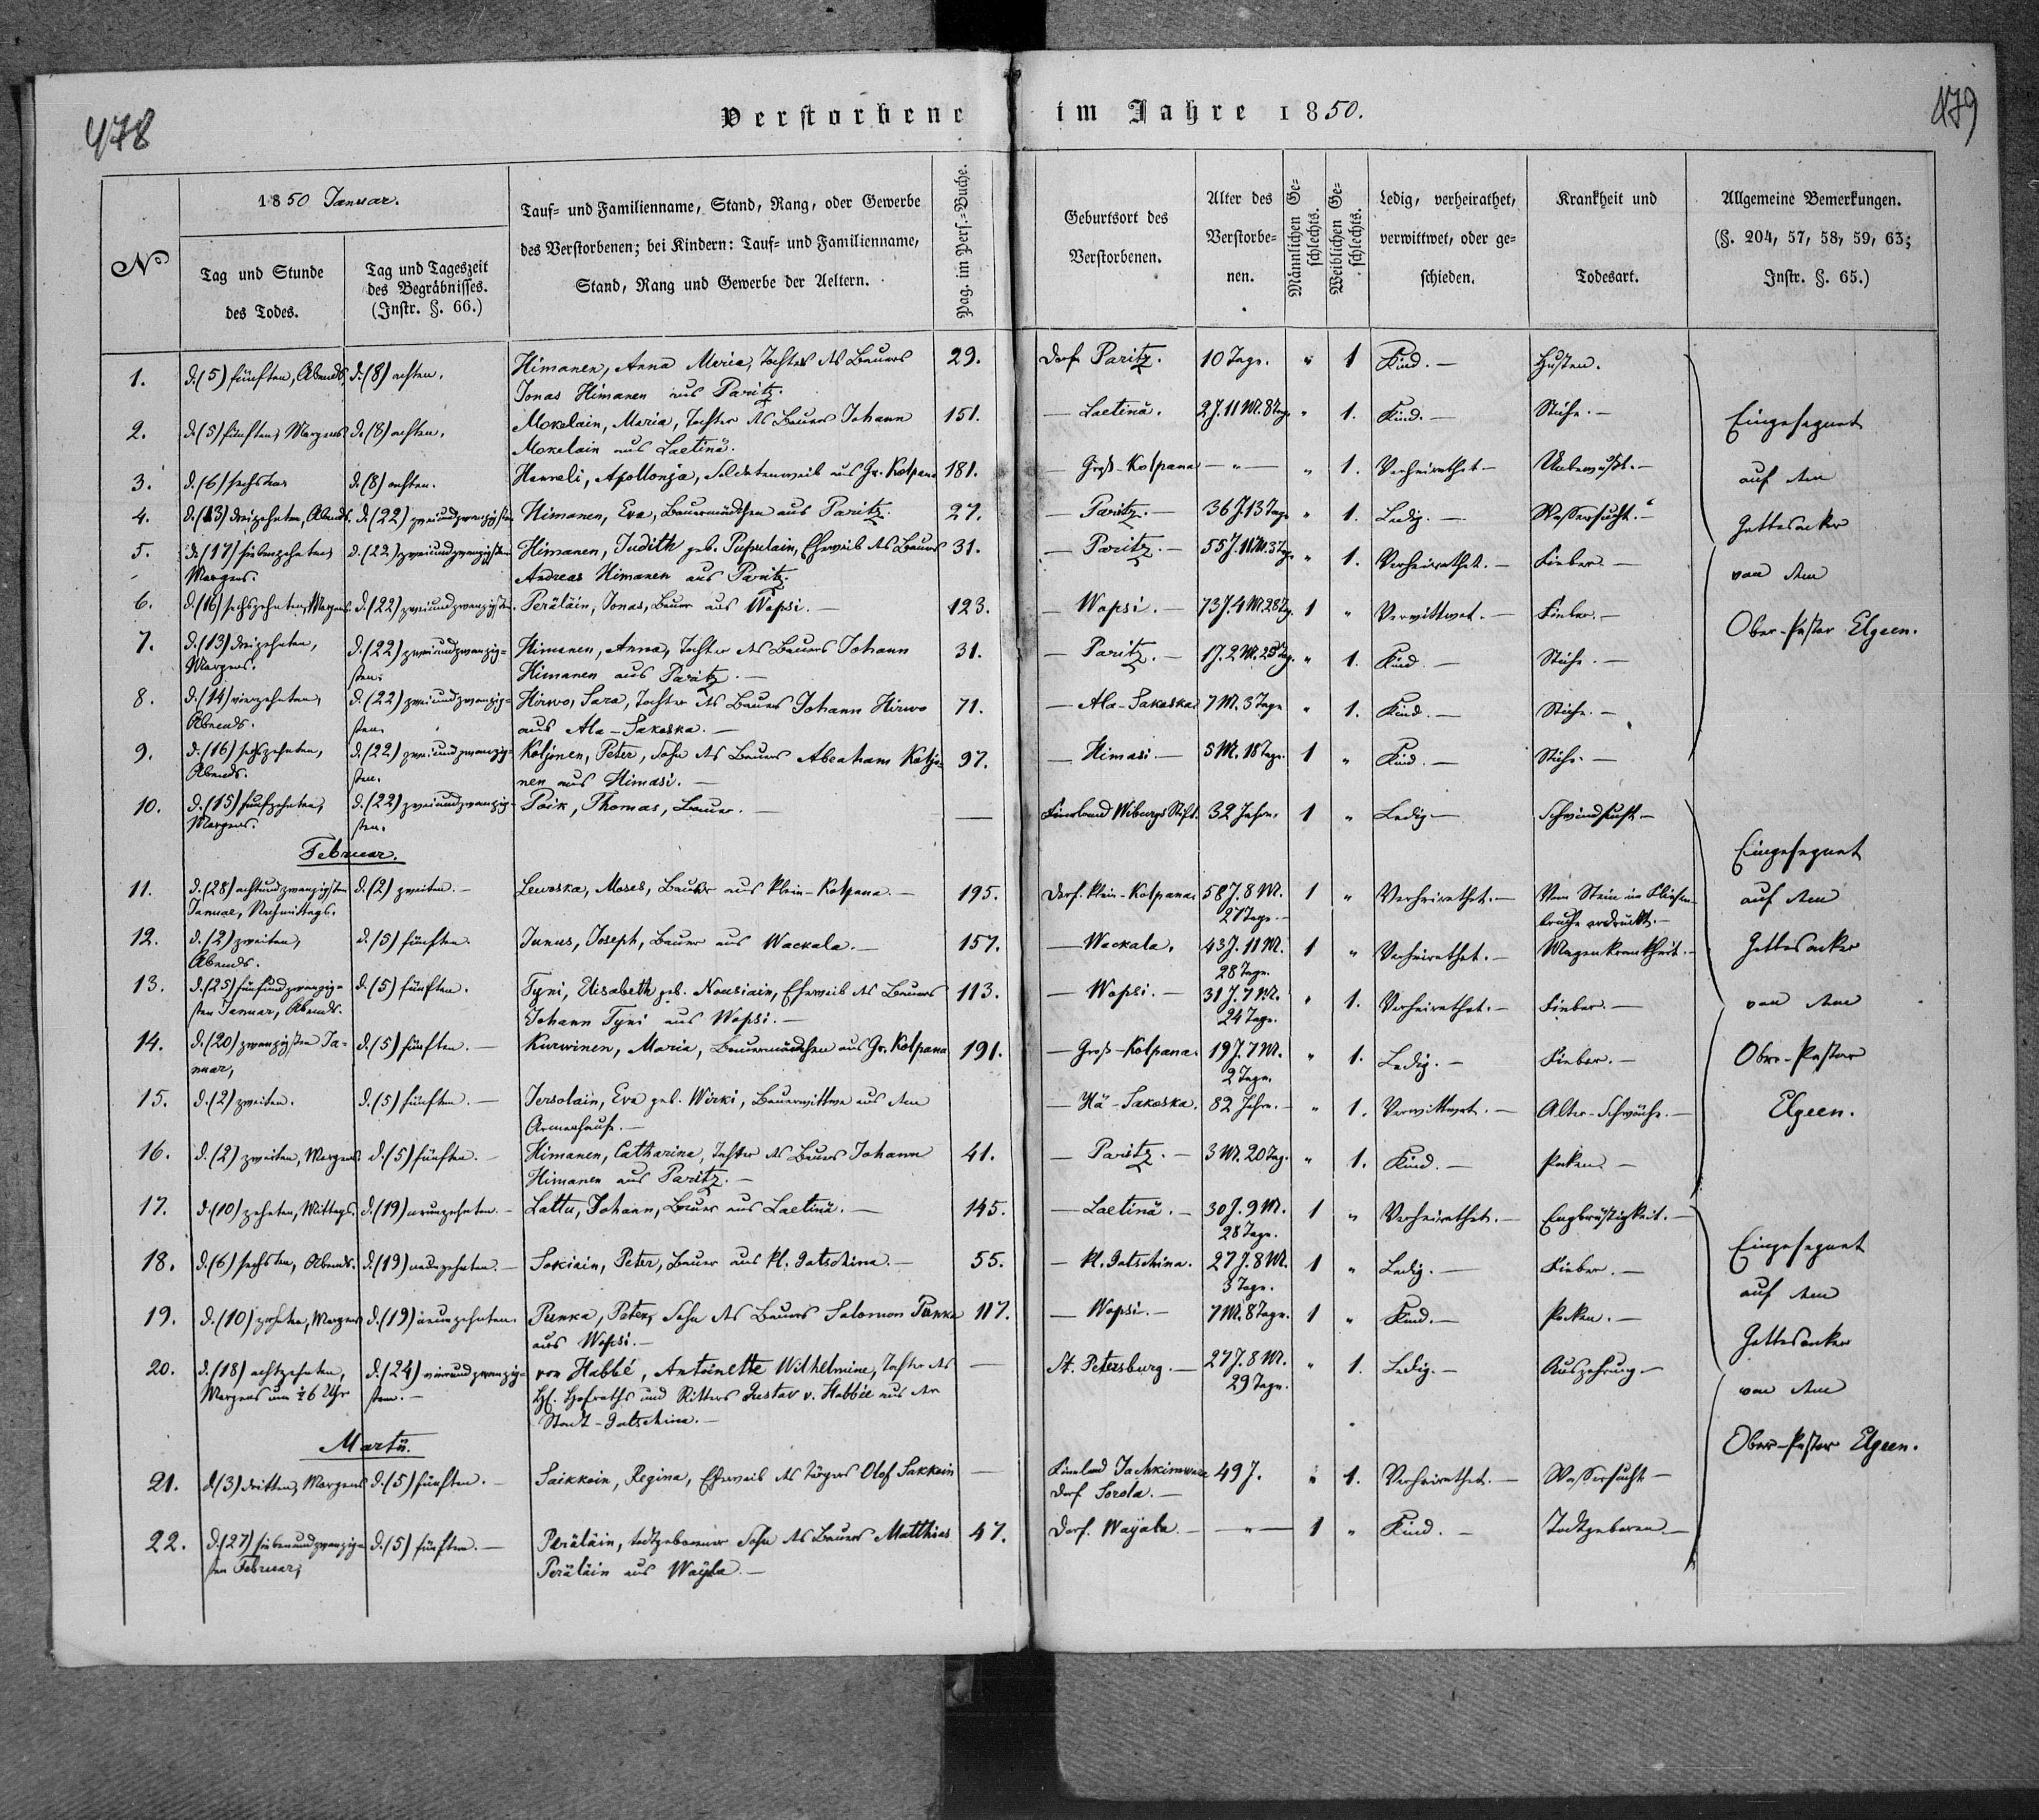 478
479
Verstorbene im Jahre 1850.
№
1850 Januar.
Tag und Stunde des Todes.
Tag und Tageszeit des Begräbnisses. (Instr. §. 66.)
Tauf- und Familienname, Stand, Rang, oder Gewerbe des Verstorbenen; bei Kindern: Tauf- und Familienname, Stand, Rang und Gewerbe der Aeltern.
Pag. im Pers.-Buche.
Geburtsort des Verstorbenen.
Alter des Verstorbenen.
Männlichen Geschlechts.
Weiblichen Geschlechts.
Ledig, verheirathet, verwittwet, oder geschieden.
Krankheit und Todesart.
Allgemeine Bemerkungen. (§. 204, 57, 58, 59, 63; Instr. §. 65.)
1. d. (5) fünften, Abends. d. (8) achten. Himanen, Anna Maria, Tochter des Bauers 29. Dorf Paritz. 10 Tage. " 1 Kind. — Husten.
Jonas Himanen aus Paritz.
2. d. (5) fünften, Morgens. d. (8) achten. Mokelain, Maria, Tochter des Bauers Johann 151. — Laetinä. 2 J. 11 M. 8 Tage " 1. Kind. — Stiche. —
Mokelain aus Laetinä.
3. d. (6) sechsten d. (8) achten. Hanneli, Apollonja, Soldatenweib aus Gr. Kolpana 181. — Groß-Kolpana — " — " 1. Verheirathet — Unbewußt. —
4. d. (13) dreizehnten, Abends. d. (22) zweiundzwanzigsten Himanen, Eva, Bauermädchen aus Paritz. 27. — Paritz. — 36 J. 13 Tage " 1. Ledig. — Wassersucht. —
5. d. (17) siebenzehnten, d. (22) zweiundzwanzigsten Himanen, Judith geb. Eheweib des Bauers 31. — Paritz. — 55 J. 11 M. 3 Tg. " 1. Verheirathet. — Fieber. —
Morgens. Andreas Himanen aus Paritz.
6. d. (16) sechszehnten, Morgens d. (22) zweiundzwanzigsten. Peräläin, Jonas, Bauer aus Wopsi. — 123. — Wopsi. — 73 J. 4 M. 28 Tg. 1 " Verwittwet. — Fieber. —
7. d. (13) dreizehnten, d. (22) zweiundzwanzig- Himanen, Anna, Tochter des Bauers Johann 31. — Paritz. — 1 J. 2 M. 25 Tg. " 1. Kind. — Stiche. —
Morgens. sten. Himanen aus Paritz. —
8. d. (14) vierzehnten, d. (22) zweiundzwanzig- Hirwo, Sara, Tochter des Bauers Johann Hirwo 71. — Ala-Sakaska. 7 M. 3 Tage " 1. Kind. — Stiche. —
Abends. sten. aus Ala-Sakaska. —
9. d. (16) sechszehnten, d. (22) zweiundzwanzig- Koljonen, Peter, Sohn des Bauers Abraham Koljo- 97. — Himasi. — 5 M. 18 Tage. 1 " Kind. — Stiche. —
Abends. sten. nen aus Himasi. —
10. d. (15) fünfzehnten, d. (22) zweiundzwanzig- Poik, Thomas, Bauer. — — Finnland Wiburgs Stift. 32 Jahre. 1 " Ledig — Schwindsucht —
Morgens. sten.
Eingesegnet
auf dem
Gottesacker
von dem
Ober-Pastor Elgeen.
Februar.
11. d. (28) achtundzwanzigsten d. (2) zweiten. — Lewoska, Moses, Bauer aus Klein-Kolpana. — 195. Dorf. Klein-Kolpana. 58 J. 8 M. 1 " Verheirathet. — Vom Stein im Fliesen-
Januar, Nachmittags. 27 Tage. — bruche erdrückt. —
12. d. (2) zweiten, d. (5) fünften. Junus, Joseph, Bauer aus Wackala. — 157. — Wackala. 43 J. 11 M. 1 " Verheirathet. — Magenkrankheit. —
Abends. 28 Tage.
13. d. (25) fünfundzwanzig- d. (5) fünften. Tyni, Elisabeth geb. Nousiain, Eheweib des Bauers 113. — Wopsi. — 31 J. 7 M. " 1. Verheirathet. — Fieber. —
sten Januar, Abends. Johann Tyni aus Wopsi. — 24 Tage.
14. d. (20) zwanzigsten Ja- d. (5) fünften. — Kurwinen, Maria, Bauermädchen aus Gr. Kolpana 191. — Groß-Kolpana. 19 J. 7 M. " 1. Ledig. — Fieber. —
nuar, 2 Tage.
15. d. (2) zweiten. d. (5) fünften. — Jersolain, Eva geb. Wirki, Bauerwittwe aus dem — Uä-Sakaska. 82 Jahre. — " 1. Verwittwet. — Alter-Schwäche. —
Armenhause. —
16. d. (2) zweiten, Morgens. d. (5) fünften. — Himanen, Catharina, Tochter des Bauers Johann 41. — Paritz. — 3 M. 20 Tag. " 1. Kind. — Pocken. —
Himanen aus Paritz. —
Eingesegnet
auf dem
Gottesacker
von dem
Ober-Pastor
Elgeen.
17. d. (10) zehnten, Mittags. d. (19) neunzehnten. — Lattu, Johann, Bauer aus Laetinä. — 145. — Laetinä. — 30 J. 9 M. 1 " Verheirathet. — Engbrüstigkeit. —
28 Tage.
18. d. (6) sechsten, Abends. d. (19) neunzehnten. — Sokiain, Peter, Bauer aus Kl. Gatschina. — 55. — Kl. Gatschina. 27 J. 8 M. 1 " Ledig. — Fieber. —
3 Tage.
19. d. (10) zehnten, Morgens d. (19) neunzehnten. Punka, Peter, Sohn des Bauers Salomon Punka 117. — Wopsi. — 7 M. 8 Tage. 1 " Kind. — Pocken. —
aus Wopsi. —
20. d. (18) achtzehnten, d. (24) vierundzwanzig- von Habbé, Antoinette Wilhelmine, Tochter des — St. Petersburg. — 27 J. 8 M. " 1. Ledig. — Auszehrung —
Morgens um ½ 6 Uhr sten. — Hofraths und Ritters Gustav v. Habbée aus der 29 Tage.
Stadt-Gatschina. —
Martii.
21. d. (3) dritten, Morgens d. (5) fünften. — Saikkain, Regina, Eheweib des Olof Sakkain — Finnland 49 J. " 1. Verheirathet. — Wassersucht —
Dorf Sorola. —
22. d. (27) siebenundzwanzig- d. (5) fünften. — Peräläin, todtgeborener Sohn des Bauers Matthias 47. Dorf. Wayala. — — " — 1 " Kind. — Todtgeboren. —
sten Februar, Peräläin aus Wayla. —
Eingesegnet
auf dem
Gottesacker
von dem
Ober-Pastor Elgeen.